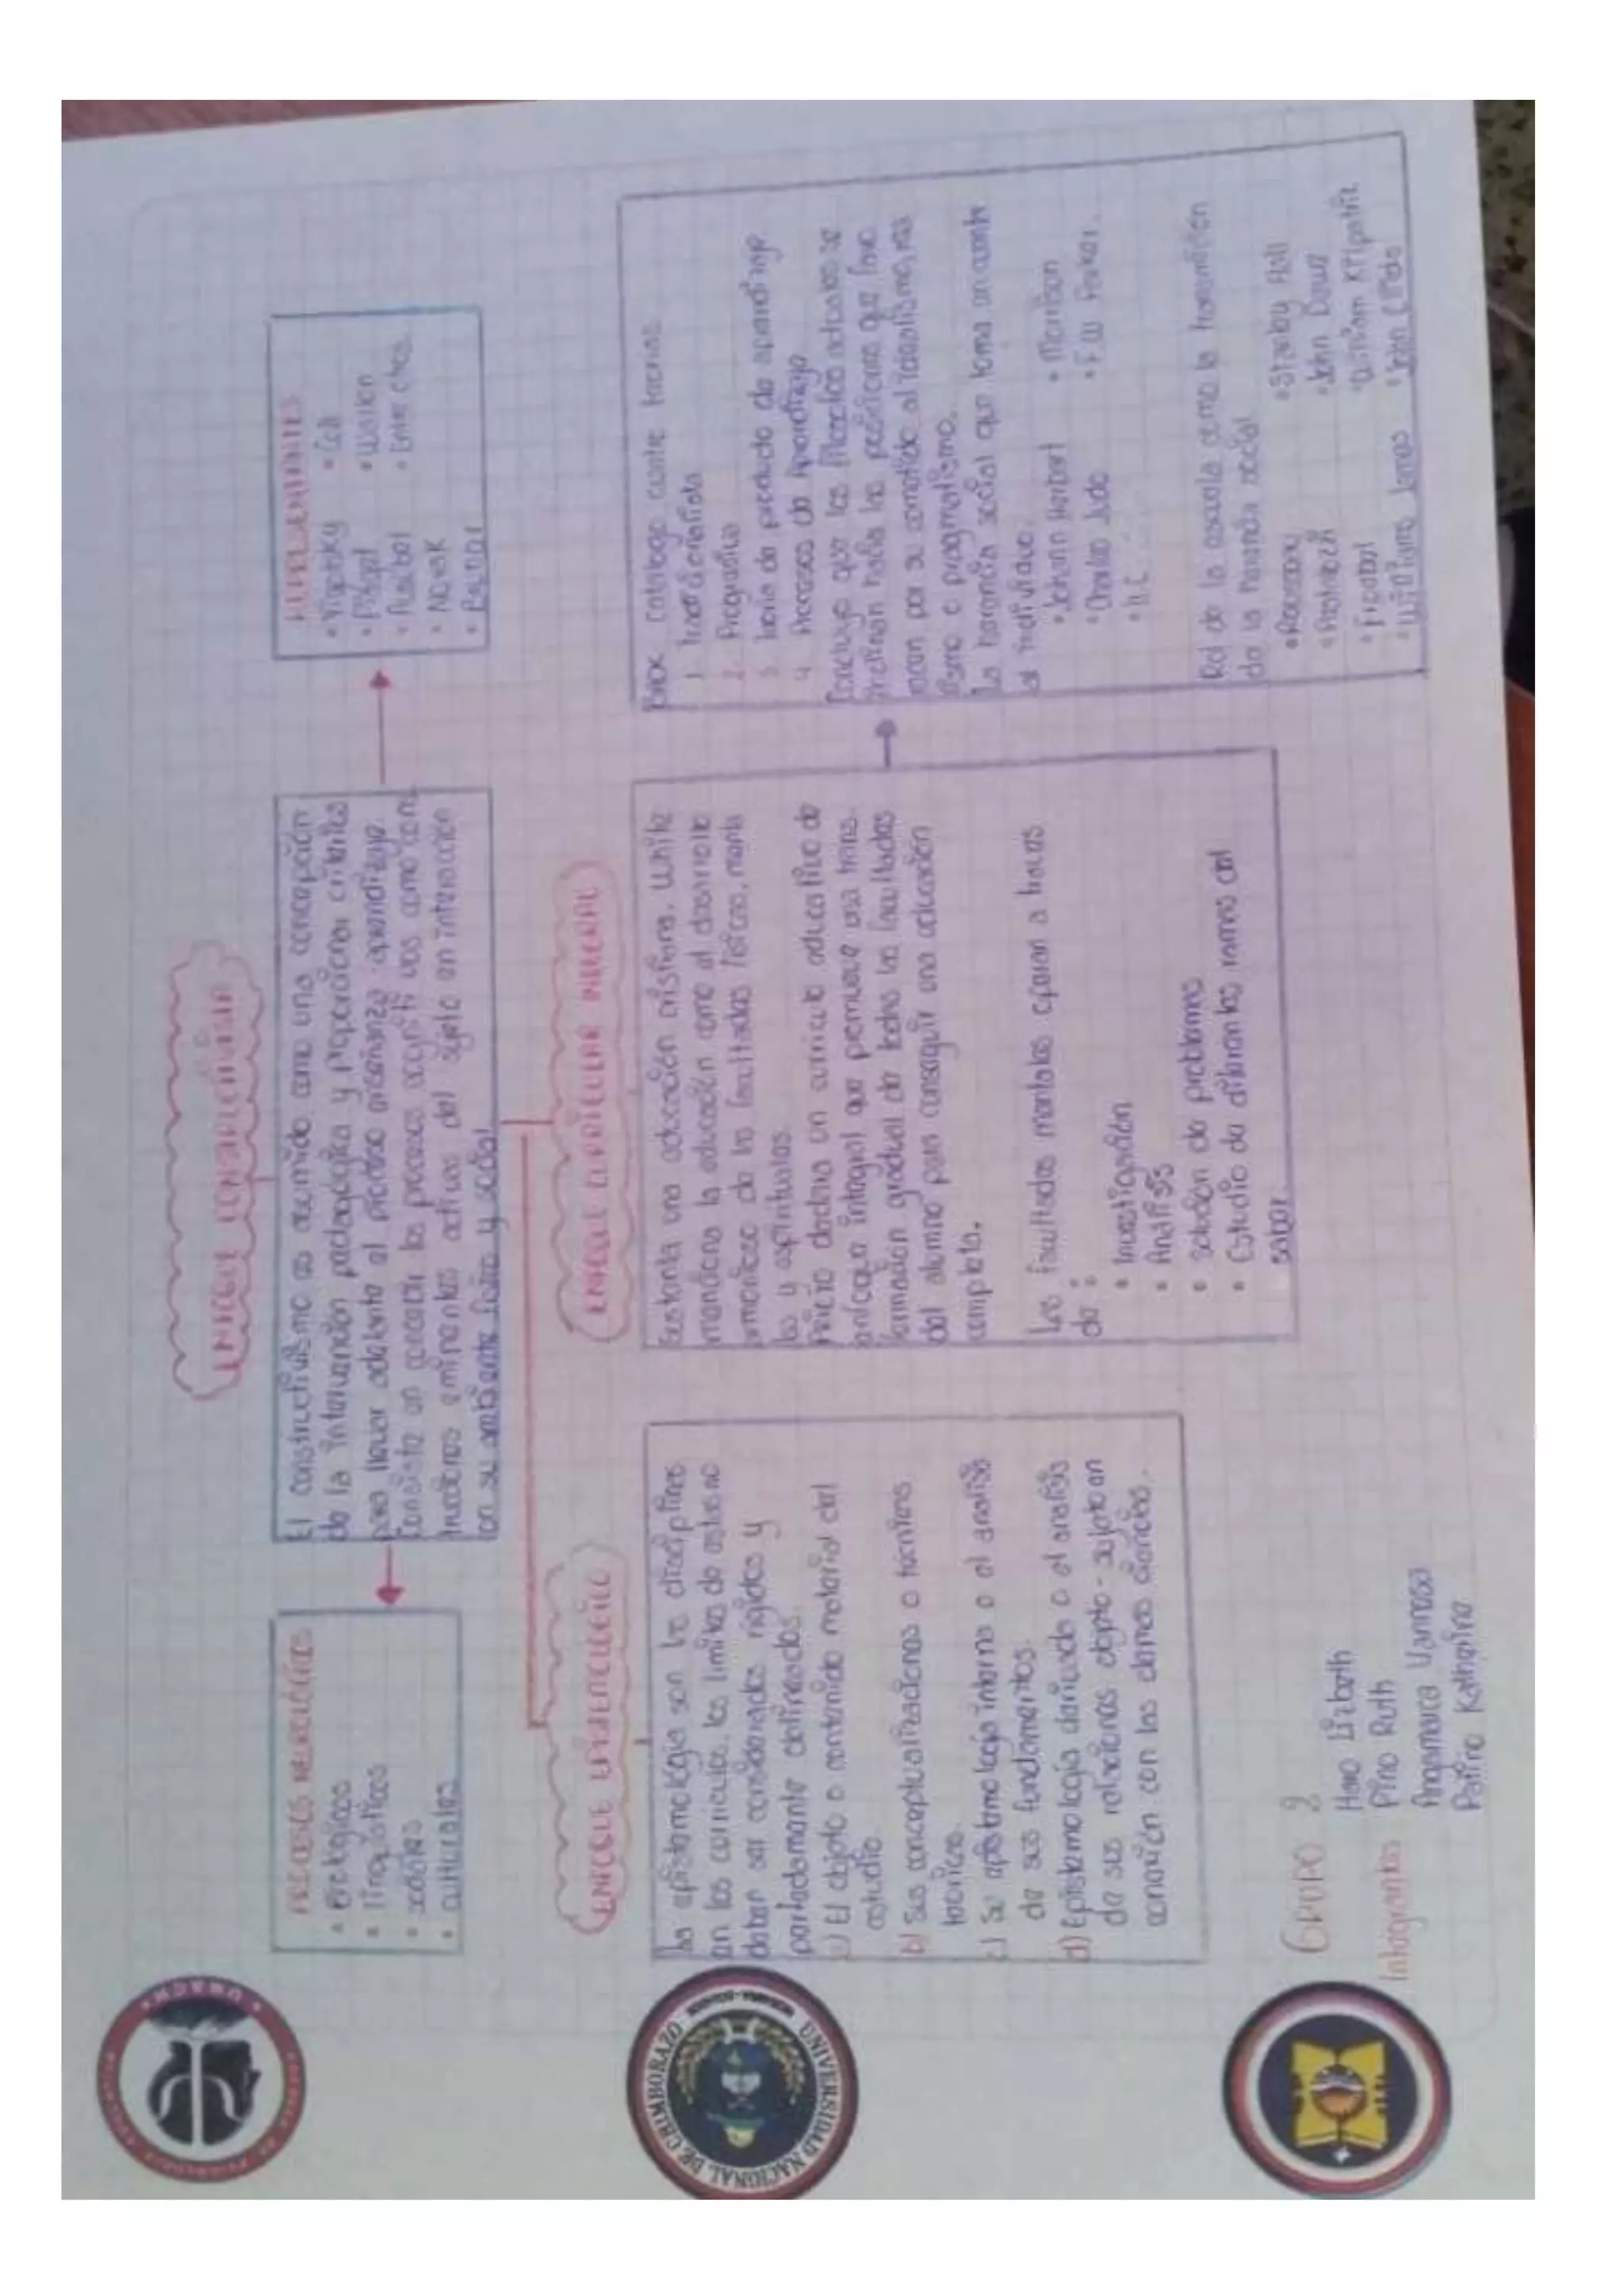 ENFOQUE CONSTRUCTIVISTA
El constructivismo es asumido como una concepción
de la intervención pedagógica y proporcionar criterios
para llevar adelante el proceso enseñanza aprendizaje.
Consiste en concebir los procesos cogniti vos como cons
trucciones eminentes activas del sujeto en interacción
con su ambiente físico y social
PROCESOS
• Biologicos
• lingüísticos
• sociales
• culturales
REPRESENTANTES
• Vigotsky
• Coll
• Piaget
• Wallon
• Ausbel
• Entre otros.
• Novak
• Bruner
ENFOQUE EPISTEMOLÓGICO
La epistemología son las disciplinas
en los currículos, los limites de estas no
deben ser considerados rígidos y
perfectamente delineados.
a) El objeto o contenido material del
estudio.
b) Sus conceptualizaciones o técnicas
teóricas.
c) Su epistemología interna o el análisis
de sus fundamentos.
d) Epistemología derivada o el analisis
de sus relaciones objeto - sujeto en
conexión con las demas ciencias.
ENFOQUE CURRÍCULAR INTEGRAL
Sustenta una educación cristiana, White
menciona la educación como el desarrollo
armonioso de las facultades físicas, menta
les y espirituales.
un curriculo educativo de
enfoque integral que promueve una trans-
formación gradual de todas las facultades
del alumno para conseguir una educación
completa.
Las facultades mentales operan a traves
de :
• Investigación
• Análisis
• solución de problemas
• Estudio de diferentes ramas del
saber.
cataloga cuatro teorías
1.
2. Pragmatica
3. teoría de producto de aprendizaje
4. Procesos de Aprendizaje
Concluye que los filosofos actuales se
inclinan hacia las posiciones que favo
recen por su cometido al idealismo, rea
lismo o pragmatismo.
La herencia social que toma en cuenta
al individuo.
• Johann Herbart
• Morrison
• Charles Judd
• F.W Parker.
• H.C
Rol de la escuela como la transmisión
de la herencia social
• Rousseau
• Stanley Hall
• Pestalozzi
• John Dewe
• Froebel
• William Kilpatrix
• William James
• John Childs
GRUPO 2
Integrantes
Haro Lizbeth
Pino Ruth
Angamarca Vanessa
Patiño Katherine
UNACH
UNIVERSIDAD NACIONAL DE CHIMBORAZO
RIOBAMBA-ECUADOR